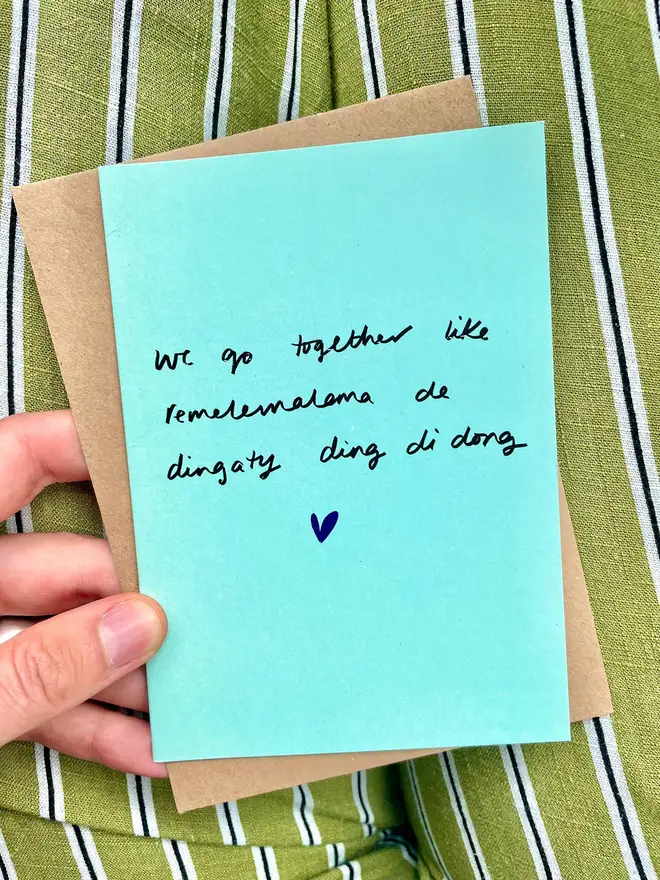 We go together like
remelemalama de
dingaty ding di dong